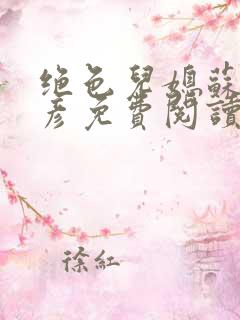 绝色兒媳蘇
彥免費閱讀
徐紅